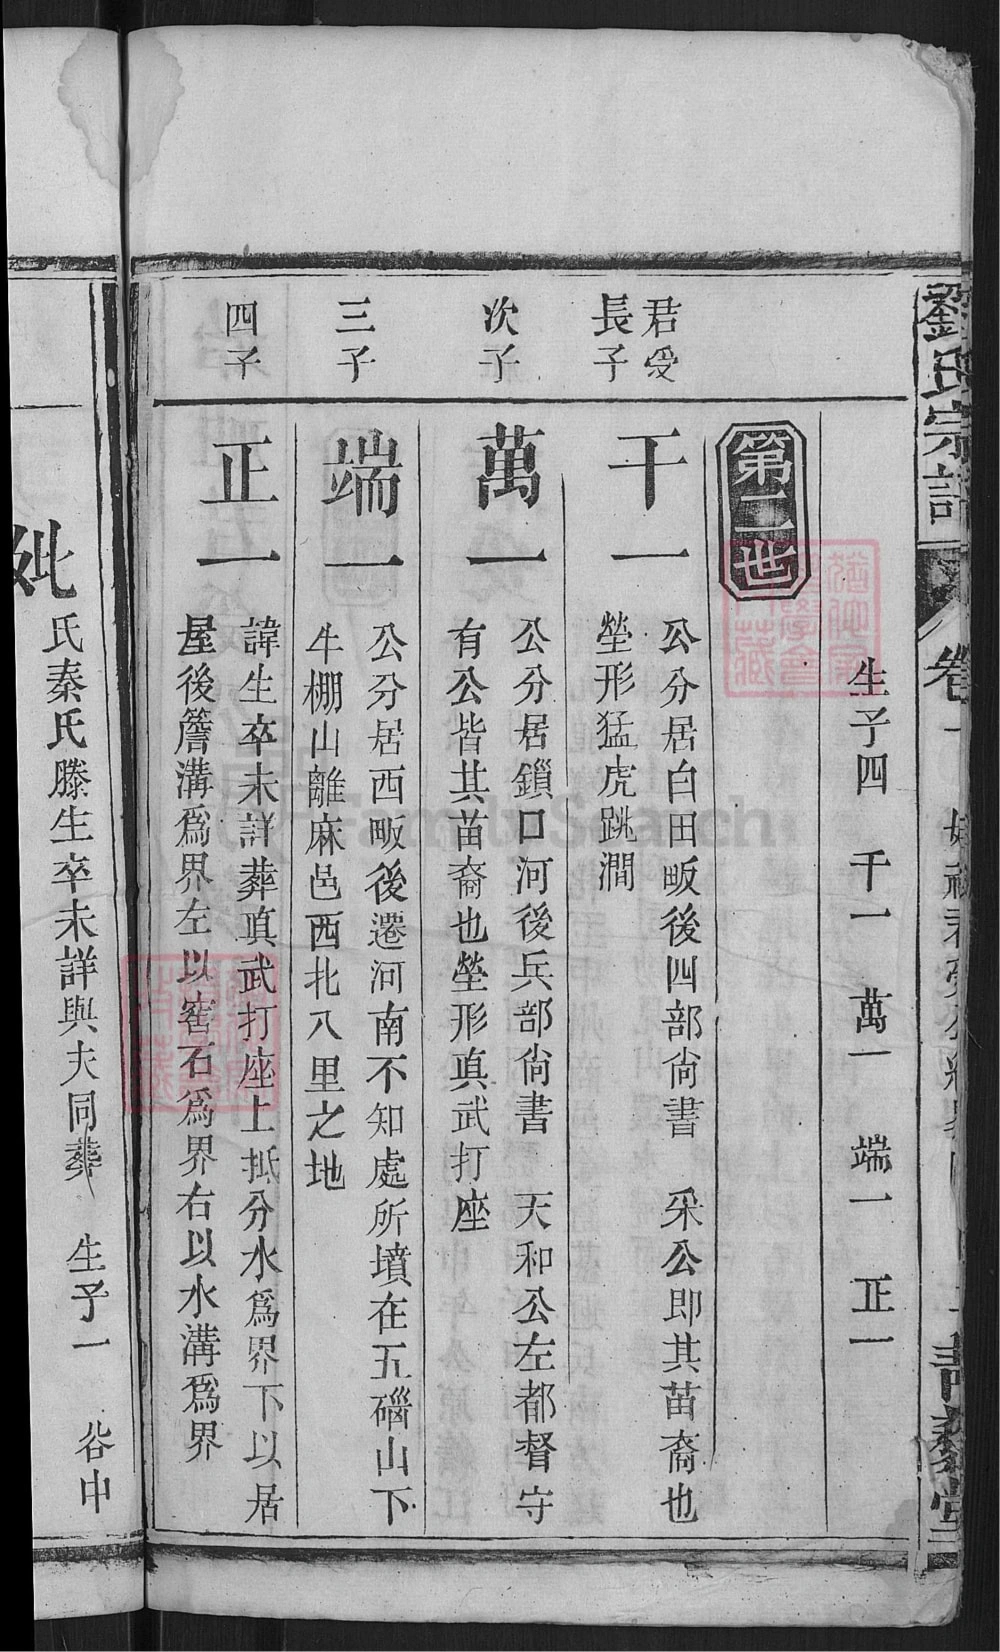 劉氏宗譜
卷一
生子四 千一 萬一 端一 正一
第二世
君受
長子
千一
公分居白田畈後四部尙書 采公即其苗裔也
塋形猛虎跳澗
次子
萬一
公分居鎖口河後兵部尙書 天和公左都督守
有公皆其苗裔也塋形真武打座
三子
端一
公分居西畈後遷河南不知處所墳在五磂山下
牛棚山離麻邑西北八里之地
四子
正一
諱生卒未詳葬真武打座上抵分水爲界下以居
屋後簷溝爲界左以窖石爲界右以水溝爲界
妣
氏秦氏滕生卒未詳與夫同葬 生子一 谷中
FamilySearch